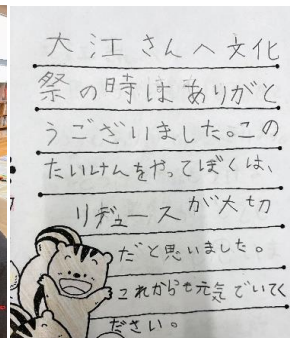 大江さんへ文化
祭の時はありがと
うございました。この
たいけんをやってぼくは、
リデュースが大切
だと思いました。
これからも元気でいてく
ださい。